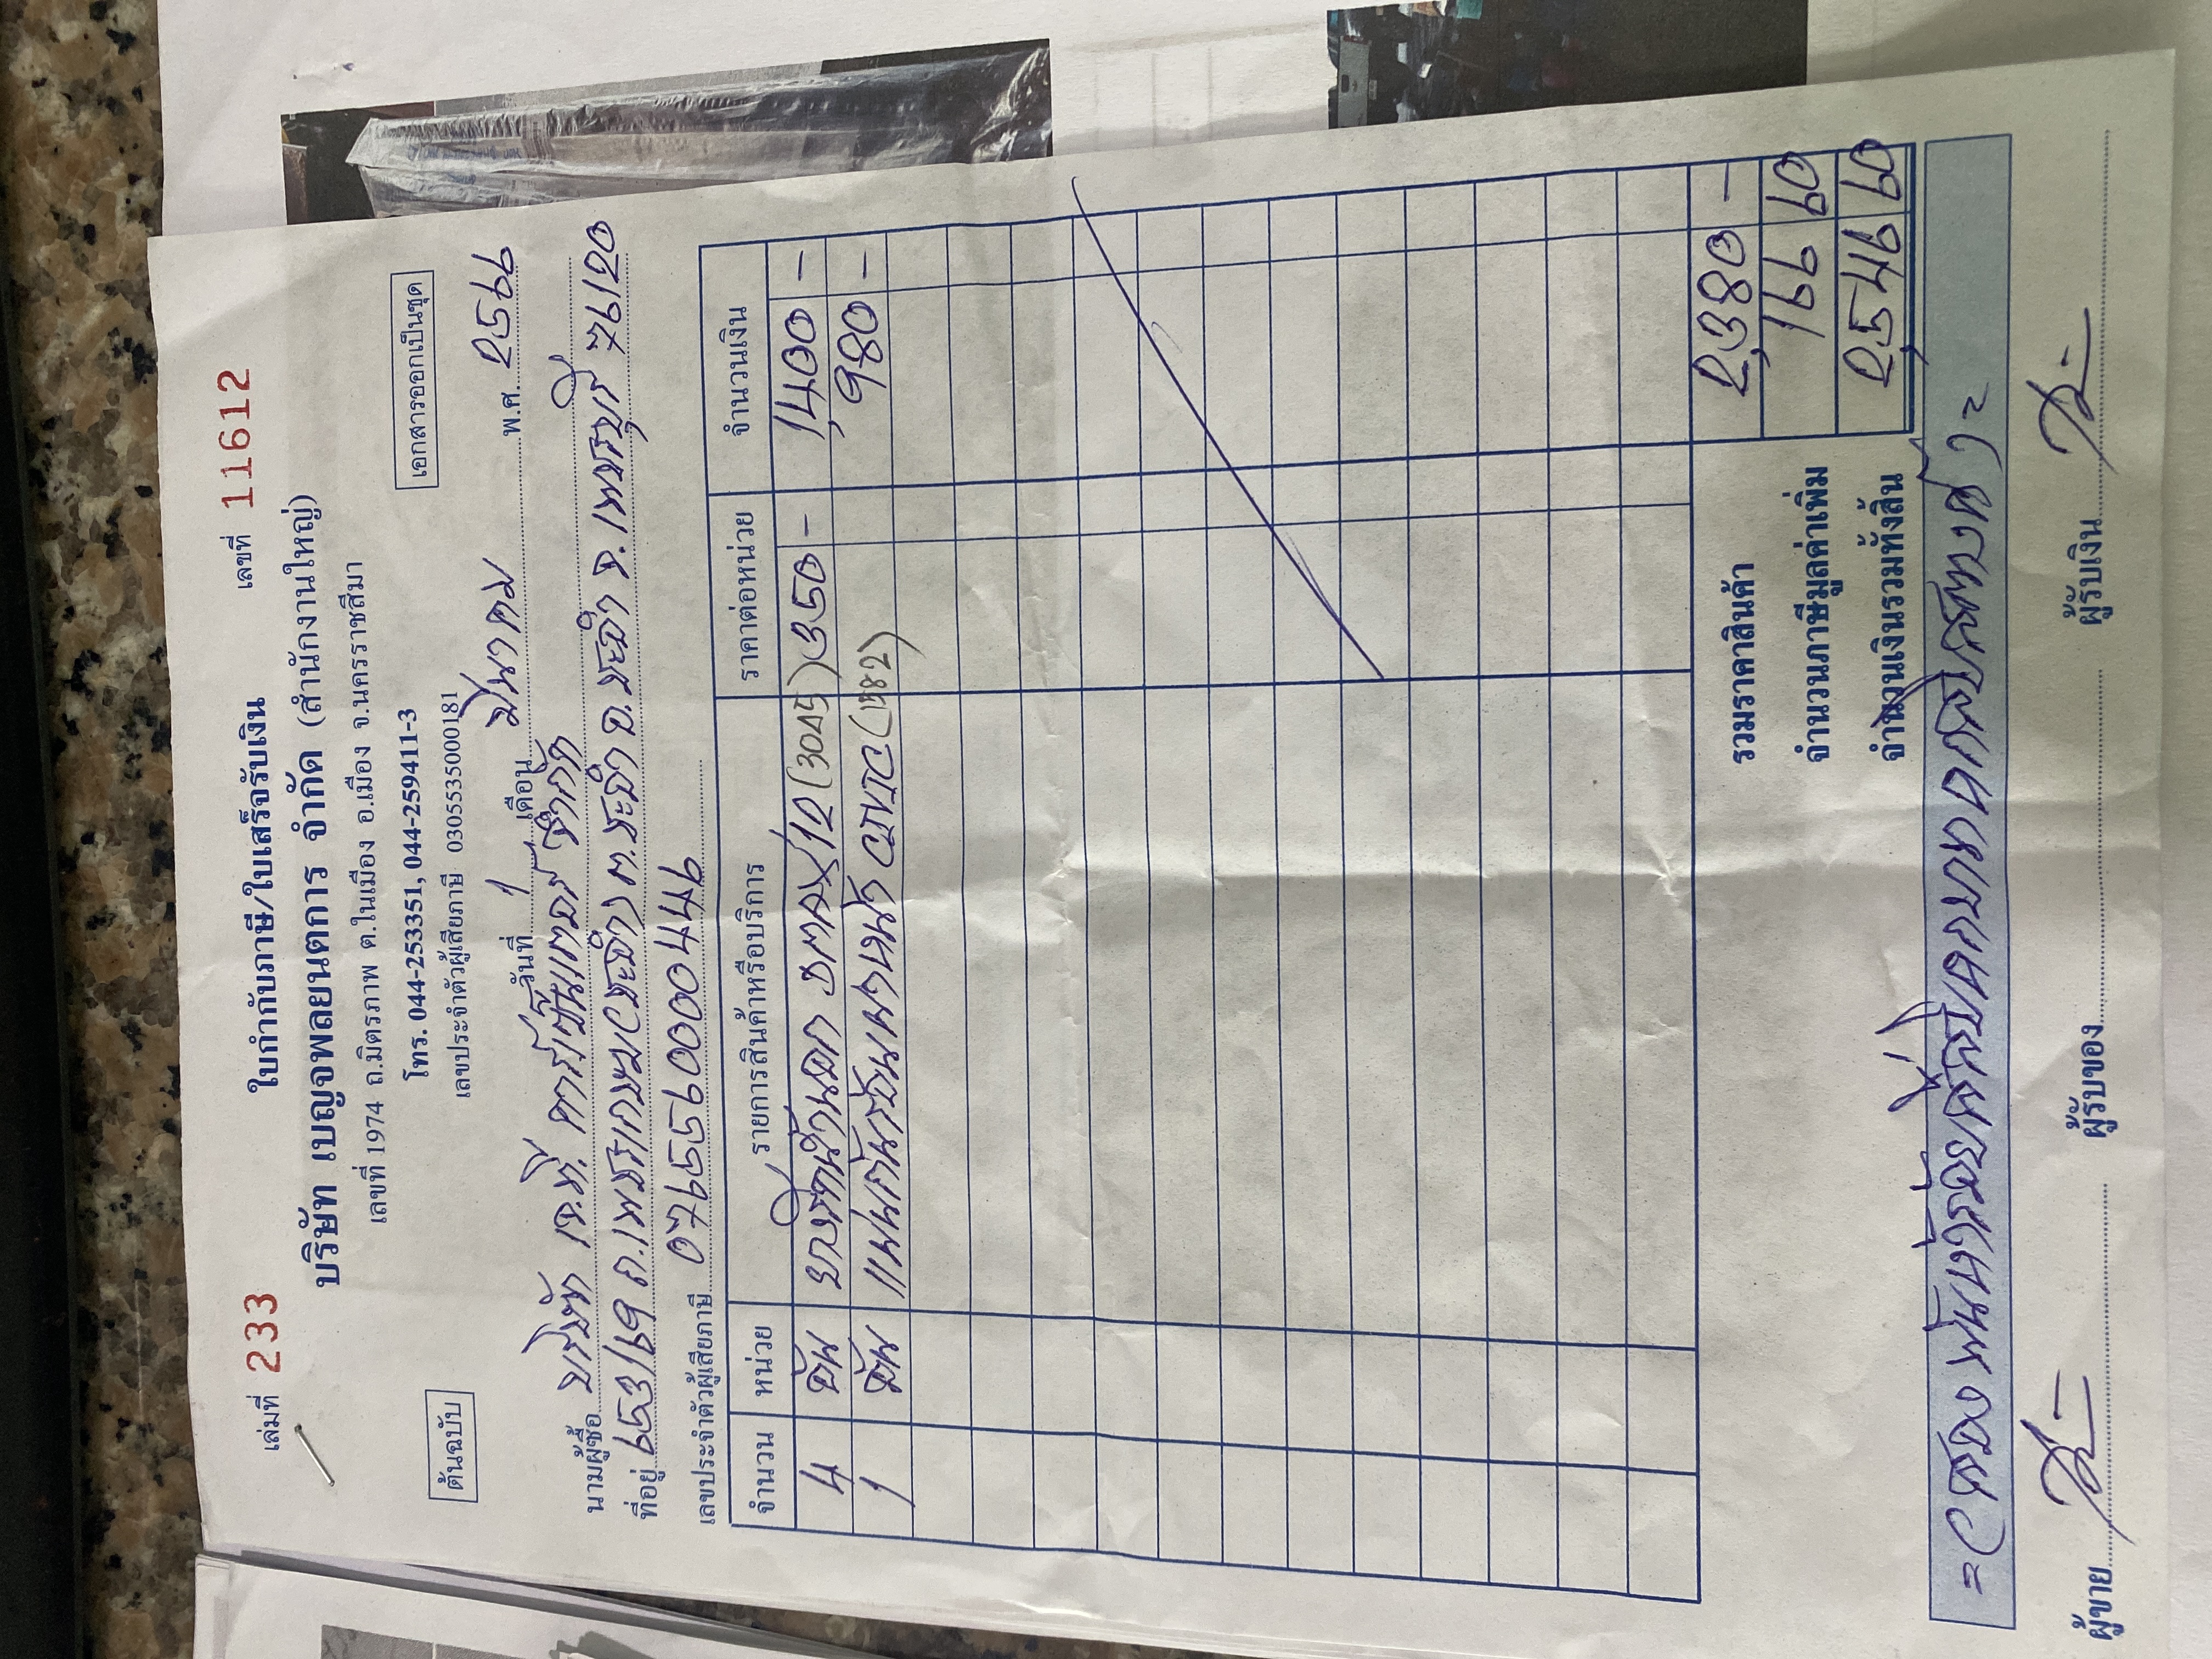 เล่มที่ 233 ใบกำกับภาษี/ใบเสร็จรับเงิน เลขที่ 11612
บริษัท เบญจพลยนตการ จำกัด (สำนักงานใหญ่)
เลขที่ 1974 ถ.มิตรภาพ ต.ในเมือง อ.เมือง จ.นครราชสีมา
ต้นฉบับ โทร. 044-253351, 044-259411-3 เอกสารออกเป็นชุด
เลขประจำตัวผู้เสียภาษี 0305535000181
วันที่ 1 เดือน มีนาคม พ.ศ. 2566
นามผู้ซื้อ บริษัท เจ.ที. คาร์เซ็นเตอร์ จำกัด
ที่อยู่ 653/16 ถ.เพชรเกษม ต.ชะอำ อ.ชะอำ จ.เพชรบุรี 76120
เลขประจำตัวผู้เสียภาษี 0765560000446
จำนวน หน่วย รายการสินค้าหรือบริการ ราคาต่อหน่วย จำนวนเงิน
4 อัน DMAX/12 (3045) 350 - 1,400 -
1 อัน (1382) 980 -
รวมราคาสินค้า 2,380 -
จำนวนภาษีมูลค่าเพิ่ม 166 60
จำนวนเงินรวมทั้งสิ้น 2,546 60
= (สองพันห้าร้อยสี่สิบหกบาทหกสิบสตางค์) =
ผู้ขาย ผู้รับของ ผู้รับเงิน